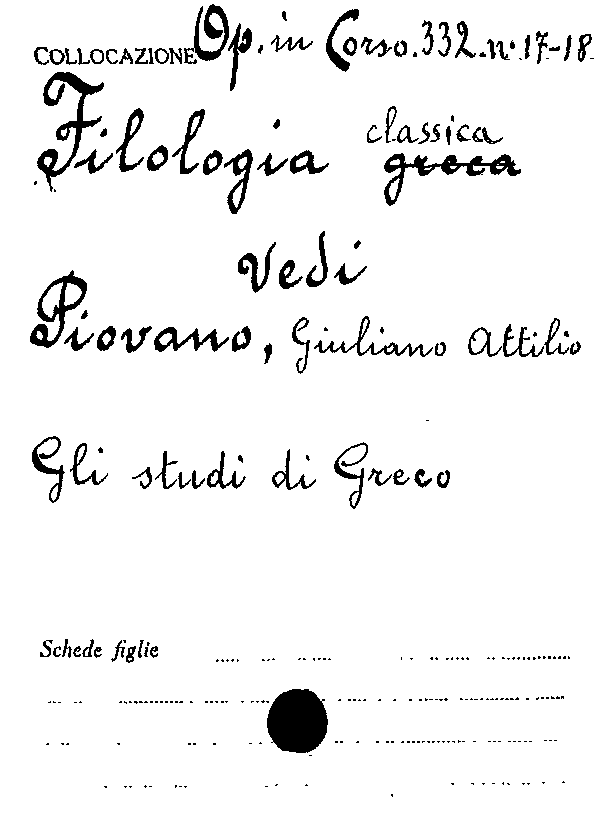 COLLOCAZIONE Op. in Corso. 332. n° 17-18
Filologia classica greca
Vedi
Piovano, Giuliano Attilio
Gli studi di Greco
Schede figlie